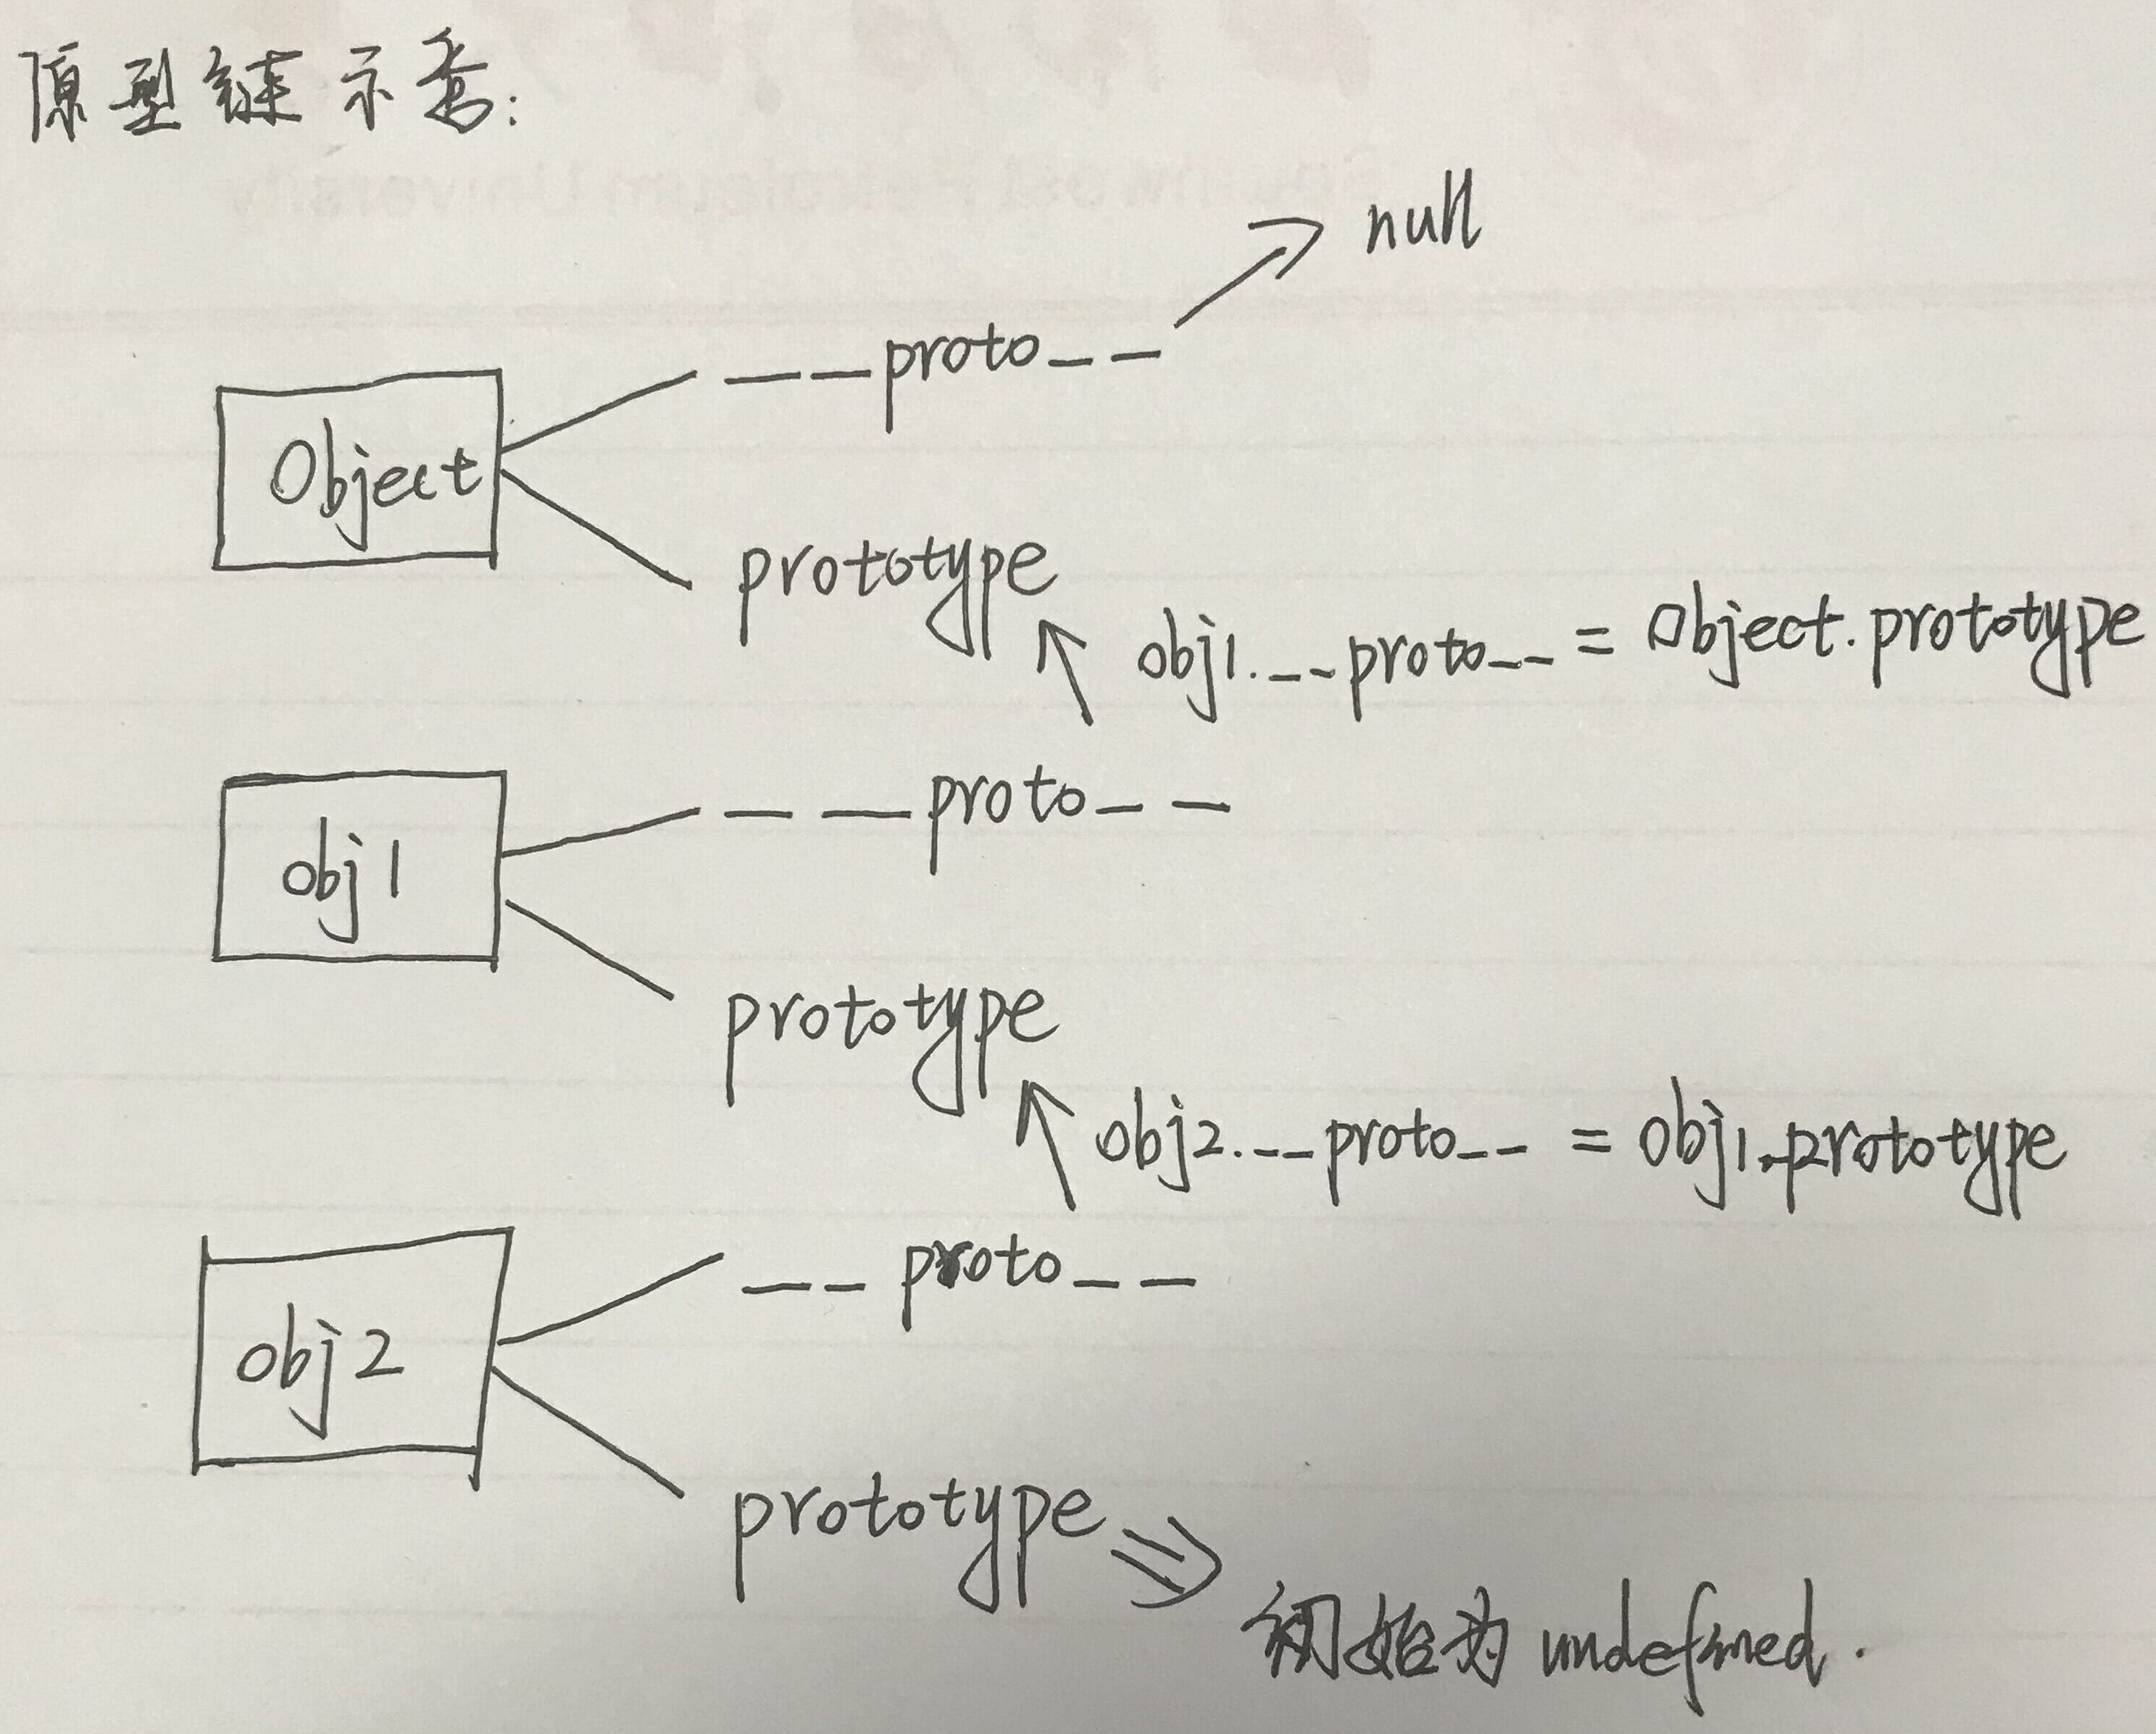 原型链示意:
null
__proto__
Object
prototype
obj1.__proto__ = Object.prototype
__proto__
obj1
prototype
obj2.__proto__ = obj1.prototype
__proto__
obj2
prototype
初始为 undefined.